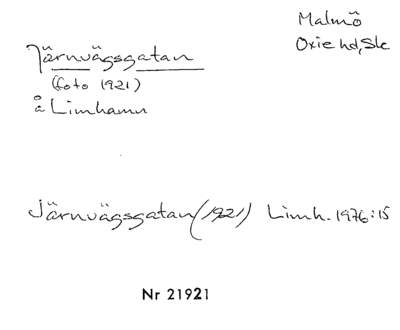 Malmö
Oxie hd, Sk
Järnvägsgatan
(foto 1921)
å Limhamn
Järnvägsgatan (1921) Limh. 1976:15
Nr 21921